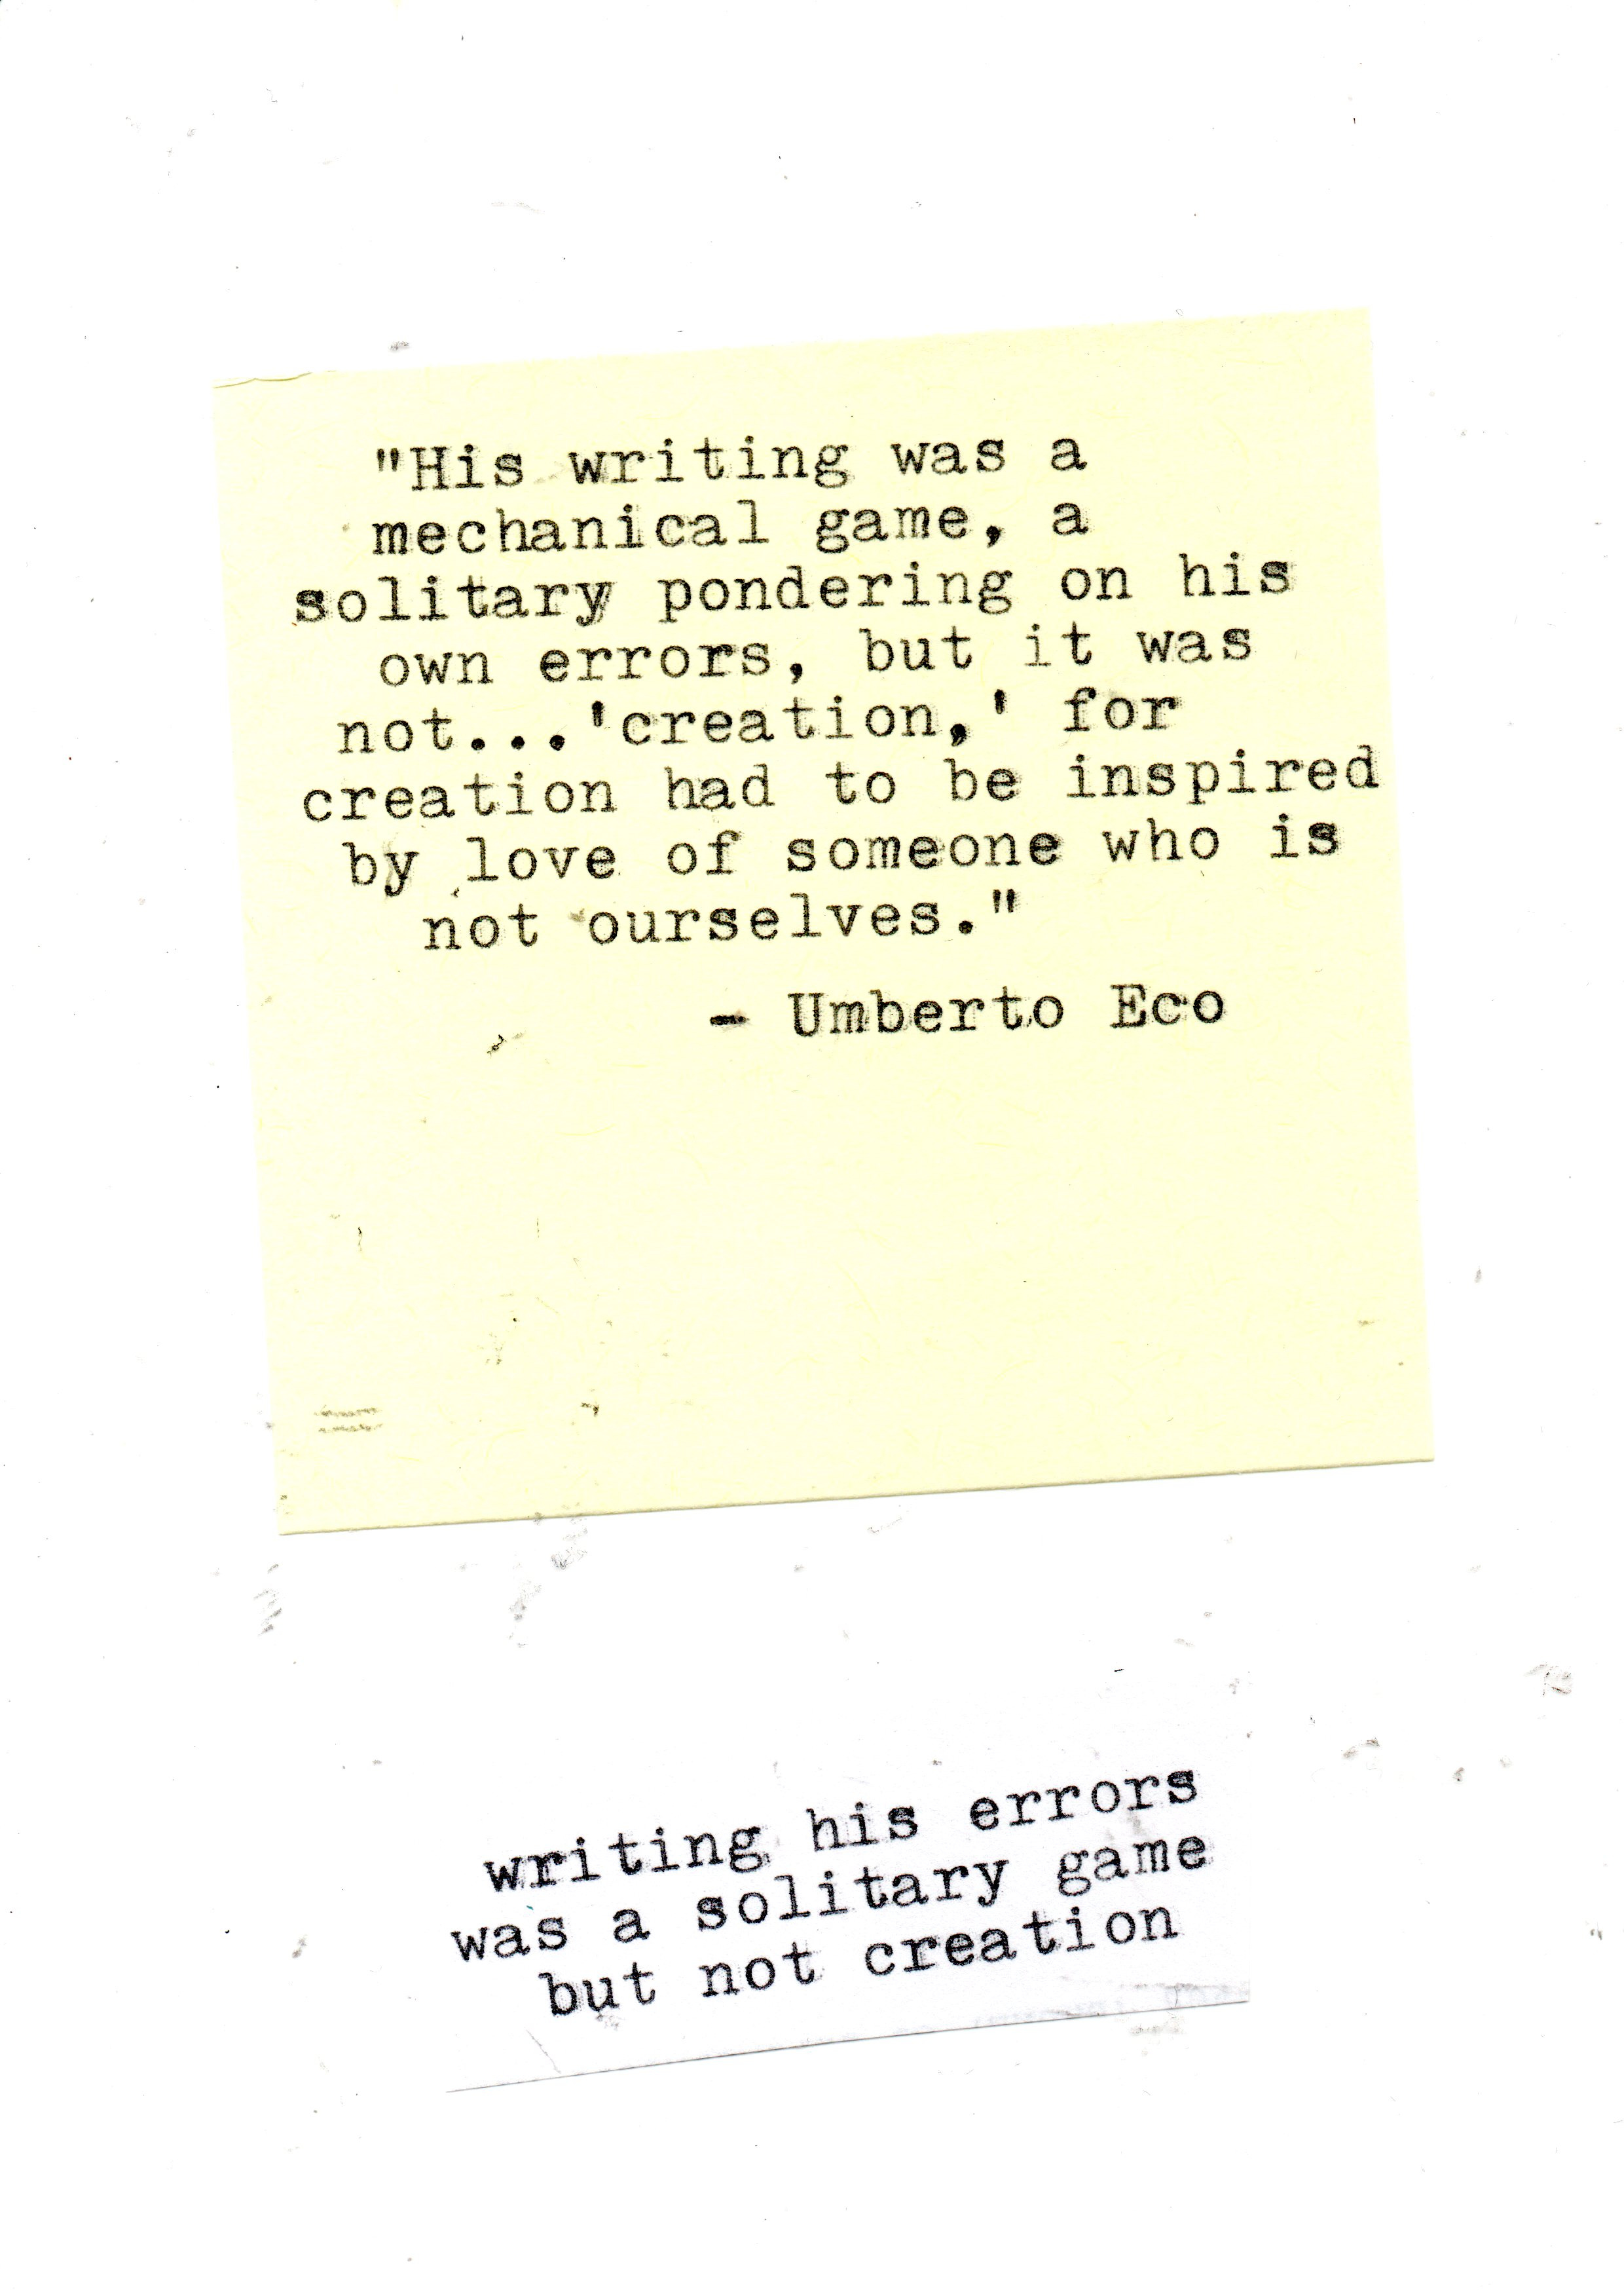 "His writing was a
mechanical game, a
solitary pondering on his
own errors, but it was
not...'creation,' for
creation had to be inspired
by love of someone who is
not ourselves."
- Umberto Eco
writing his errors
was a solitary game
but not creation